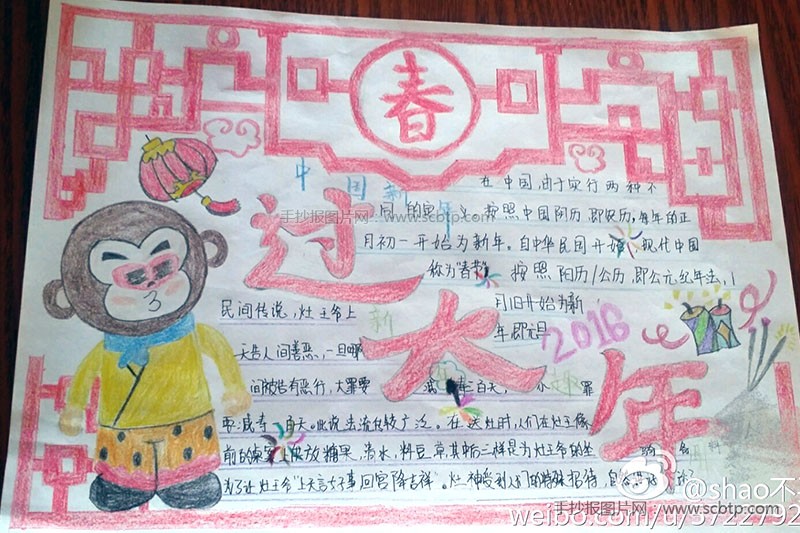 春
中国新年
过大年
2016
在中国,由于实行两种不
同的 按照中国阴历,即农历,每年的正
月初一开始为新年。自中华民国开始,现代中国
称为"春节" 按照阳历/公历,即公元纪年法,1
月1日开始为新
年,即元旦
民间传说,灶王爷上
天告人间善恶,一旦
间被告有恶行,大罪要 三百天, 罪
要减寿一百天。此说法流传较广泛。在送灶时,人们在灶王像
前的桌案上供放糖果、清水、料豆、草,其中后三样是为灶王爷的坐
为了让灶王爷"上天言好事,回宫降吉祥"。灶神受到人们的特殊招待,自
手抄报图片网 www.scbtp.com
@shao不
手抄报图片网 www.scbtp.com
weibo.com/u/5722792